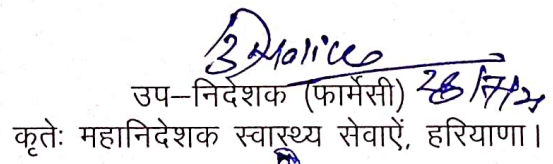 उप–निदेशक (फार्मेसी)
कृतेः महानिदेशक स्वास्थ्य सेवाऐं, हरियाणा।